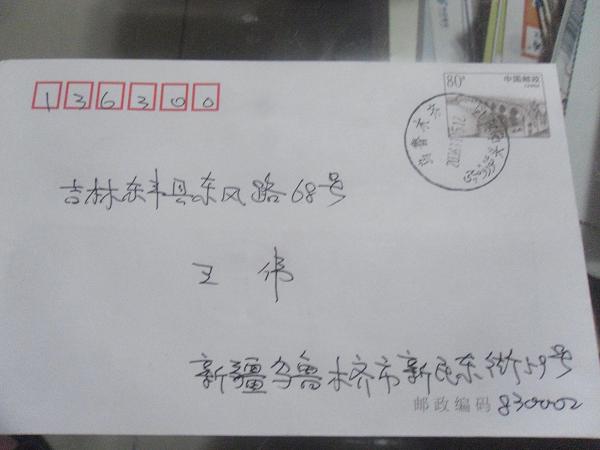 136300
80分
中国邮政
吉林东丰县东风路68号
王 伟
新疆乌鲁木齐市新民东街59号
邮政编码 830002